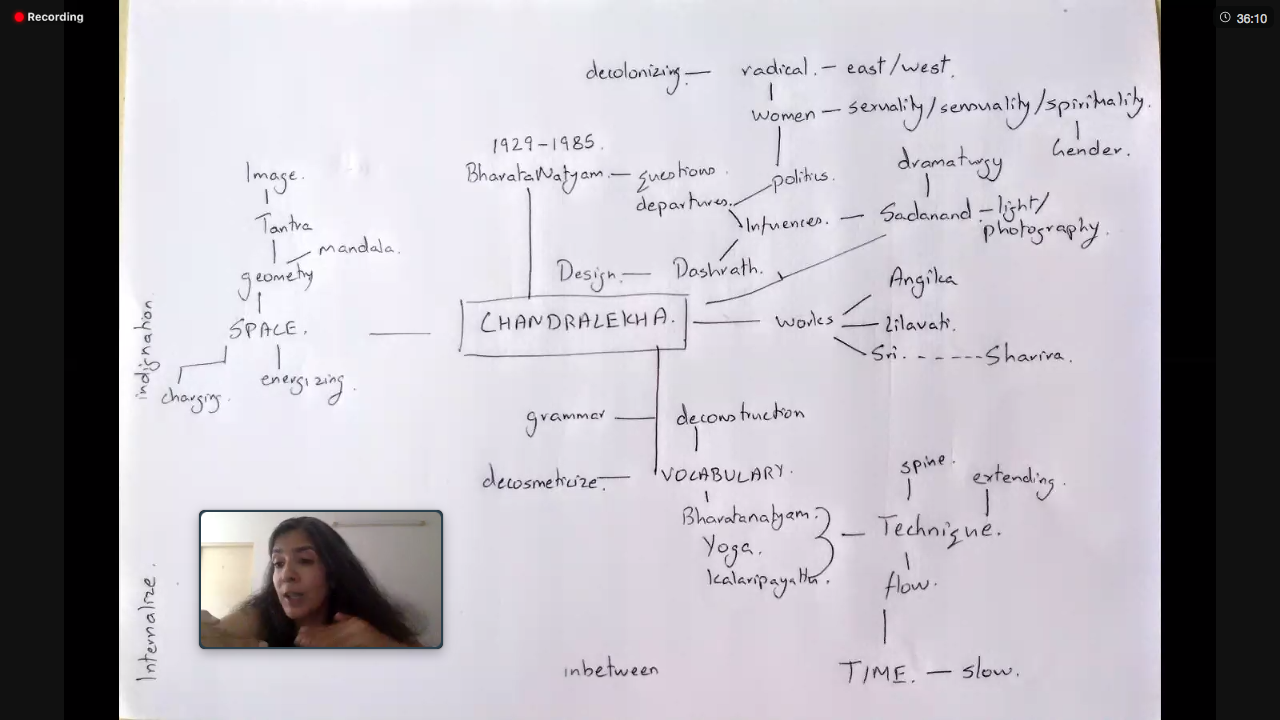 Recording
36:10
decolonizing — radical. – east/west.
women – sexuality/sensuality/spirituality.
Gender.
1929–1985.
BharataNatyam. – questions.
departures.
politics.
dramaturgy
Influences. – Sadanand – light/
photography.
Design. — Dashrath.
Image.
Tantra
mandala.
geometry
SPACE.
charging.
energizing.
indignation.
CHANDRALEKHA.
works
Angika
Lilavati.
Sri. - - - - - Sharira.
grammar — deconstruction
decosmeticize. — VOCABULARY.
Bharatanatyam.
Yoga.
Kalaripayattu.
spine.
extending.
Technique.
flow.
TIME. — slow.
inbetween
Internalize.